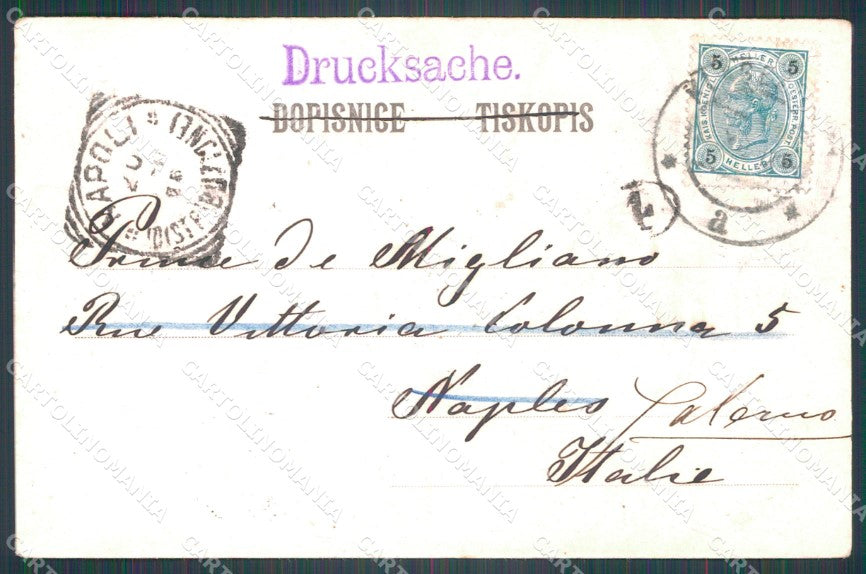 Drucksache.
DOPISNICE TISKOPIS
5 HELLER 5
KAIS. KOENIGL. OESTERR. POST
5 HELLER 5
NAPOLI
a
Prince de Migliano
Rue Vittoria Colonna 5
Naples Salerno
Italie
CARTOLINOMANIA